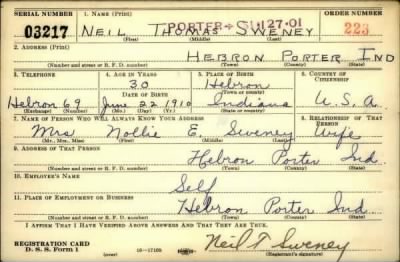 SERIAL NUMBER 1. NAME (Print) ORDER NUMBER
03217 NEIL THOMAS SWENEY 223
(First) (Middle) (Last)
2. ADDRESS (Print)
HEBRON PORTER IND
(Number and street or R. F. D. number) (Town) (County) (State)
3. TELEPHONE 4. AGE IN YEARS 5. PLACE OF BIRTH 6. COUNTRY OF CITIZENSHIP
30 Hebron
DATE OF BIRTH (Town or county)
Hebron 69 June 22 1910 Indiana U.S.A.
(Exchange) (Number) (Mo.) (Day) (Yr.) (State or country)
7. NAME OF PERSON WHO WILL ALWAYS KNOW YOUR ADDRESS 8. RELATIONSHIP OF THAT PERSON
Mrs Nollie E. Sweney Wife
(Mr., Mrs., Miss) (First) (Middle) (Last)
9. ADDRESS OF THAT PERSON
Hebron Porter Ind.
(Number and street or R. F. D. number) (Town) (County) (State)
10. EMPLOYER'S NAME
Self
11. PLACE OF EMPLOYMENT OR BUSINESS
Hebron Porter Ind.
(Number and street or R. F. D. number) (Town) (County) (State)
I AFFIRM THAT I HAVE VERIFIED ABOVE ANSWERS AND THAT THEY ARE TRUE.
REGISTRATION CARD
D. S. S. Form 1 16—17105 Neil T Sweney
(Registrant's signature)